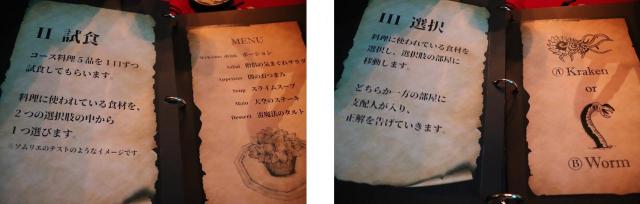 II 試食
コース料理5品を1口ずつ
試食してもらいます。
料理に使われている食材を、
2つの選択肢の中から
1つ選びます。
※ソムリエのテストのようなイメージです
MENU
Welcome drink ポーション
Salad 僧侶の気まぐれサラダ
Appetizer 闇のおつまみ
Soup スライムスープ
Main 天空のステーキ
Dessert 雷魔法のタルト
III 選択
料理に使われている食材を
選択し、選択肢の部屋に
移動します。
どちらか一方の部屋に
支配人が入り、
正解を告げていきます。
Ⓐ Kraken
or
Ⓑ Worm